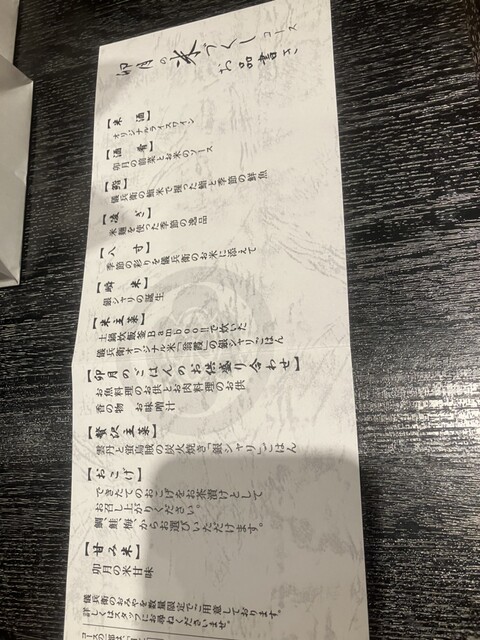 卯月の米づくしコース
お品書き
【米 酒】
オリジナルライスワイン
【酒 肴】
卯月の前菜とお米のソース
【鮨】
儀兵衛の鮨米で握った鮨と季節の鮮魚
【凌 ぎ】
米麺を使った季節の逸品
【八 寸】
季節の彩りを儀兵衛のお米に添えて
銀シャリの誕生
【米主菜】
土鍋炊飯釜Bamboo!!で炊いた
儀兵衛オリジナル米「翁霞」の銀シャリごはん
【卯月のごはんのお供盛り合わせ】
お魚料理のお供とお肉料理のお供
香の物 お味噌汁
【贅沢主菜】
雲丹と蛍烏賊の炭火焼き「銀シャリ」ごはん
【おこげ】
できたてのおこげをお茶漬けとして
お召し上がりください。
鯛、鮭、梅からお選びいただけます。
【甘み米】
卯月の米甘味
儀兵衛のおみやを数量限定でご用意しております。
詳しくはスタッフにお尋ねくださいませ。